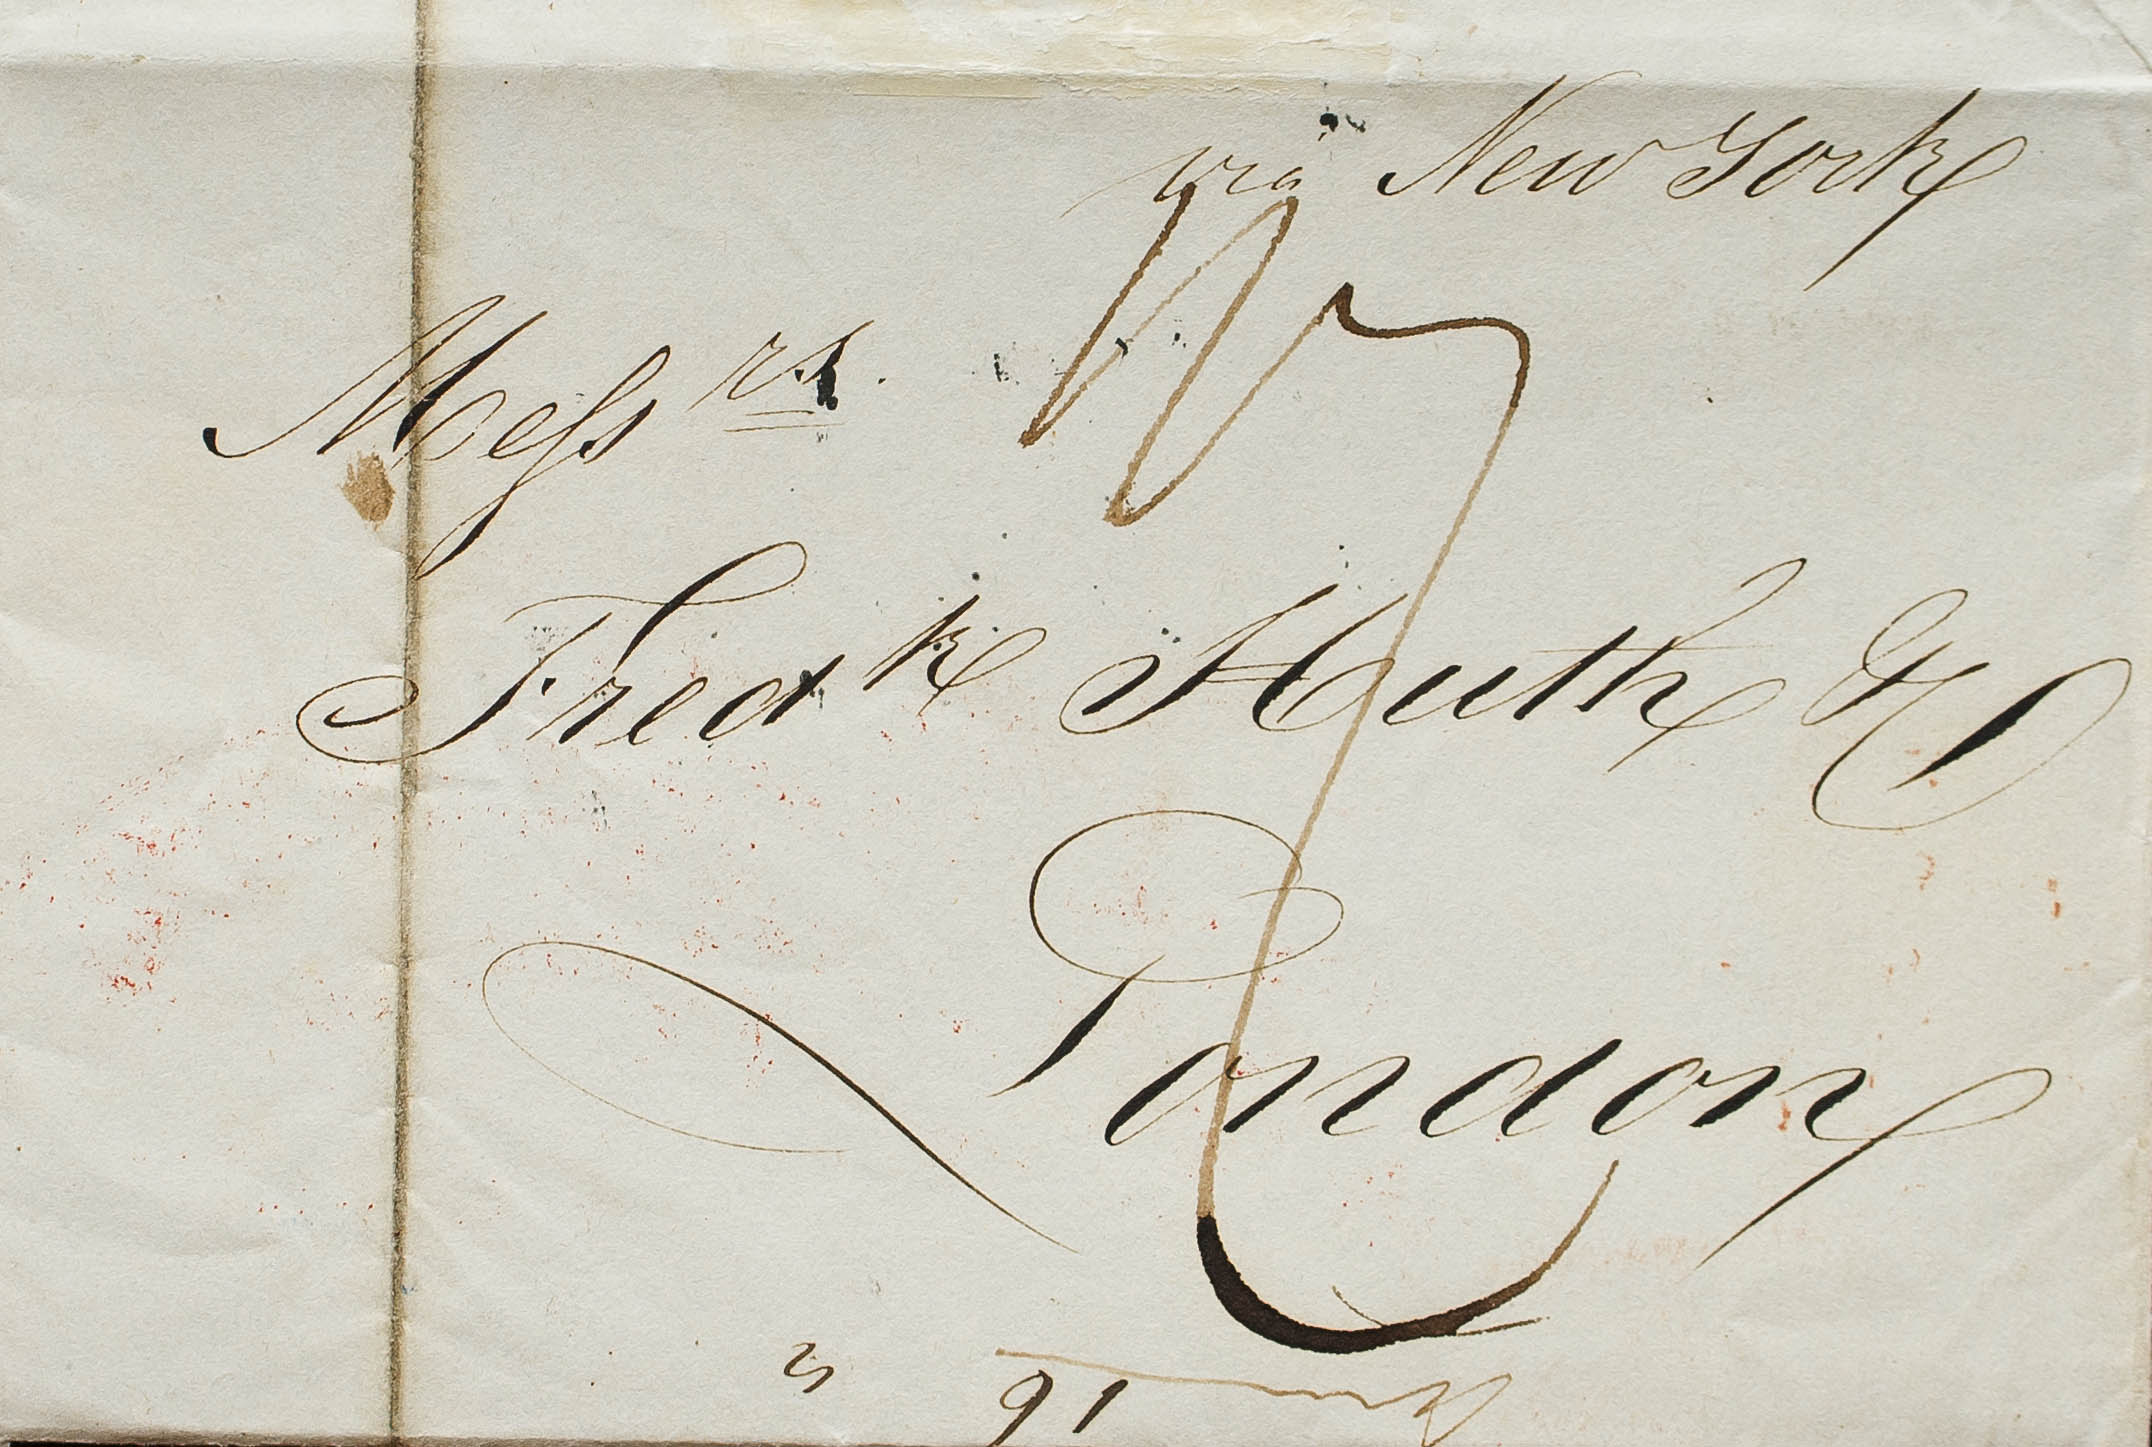 via New York
Messrs.
Fredk Huth & Co
London